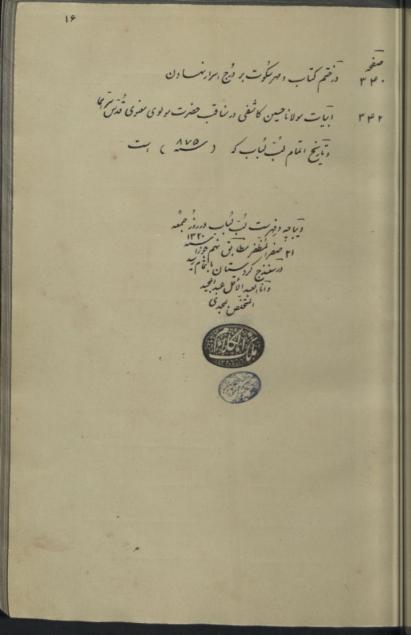 ۱۶
صفحه
۳۴۰ در ختم کتاب و مهر سکوت بر درج اسرار نهادن
۳۴۲ ابیات مولانا حسین کاشفی در مناقب حضرت مولوی معنوی قدس سرهما
و تاریخ اتمام لب لباب که (سنه ۸۷۵) است
دیباچه و فهرست لب لباب در روز جمعه
۲۱ صفر المظفر مطابق نهم جوزا سنه ۱۳۲۰
در سنندج کردستان باتمام رسید
و انا العبد الاقل عبدالمجید
المتخلص بمجدی
ملک الکلام